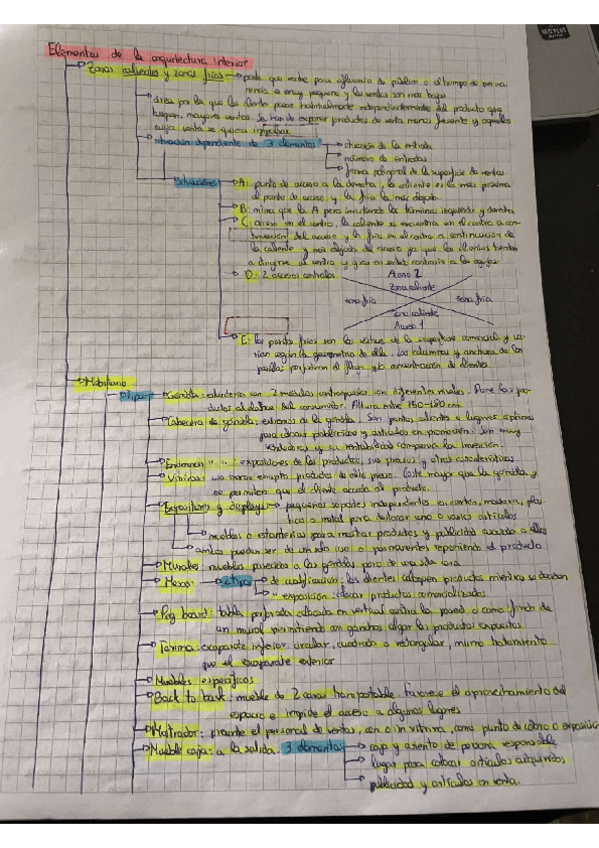 Elementos de la arquitectura interior
Zonas calientes y zonas frías → parte que recibe poca afluencia de público o el tiempo de perma
nencia es muy pequeno y las ventas son más bajas
área por la que los clientes pasan habitualmente independientemente del producto que
busquen, mayores ventas. Se han de exponer productos de venta menos frecuente y aquellos
cuya venta se quiera impulsar
situación dependiente de 3 elementos → situación de la entrada
número de entradas
forma principal de la superficie de ventas
Situaciones → A: punto de acceso a la derecha, la caliente es la más próxima
al punto de acceso y la fría la más alejada
B: misma que la A pero invirtiendo los términos izquierda y derecha
C: acceso en el centro, la caliente se encuentra en el centro a con
tinuación del acceso y la fría en el centro a continuación de
la caliente y más alejada del acceso ya que los clientes tienden
a dirigirse al centro y
D: 2 accesos centrales
Acceso 2
Zona caliente
zona fría zona fría
Zona caliente
Acceso 1
E: los puntos fríos son los de la superficie comercial y va
rían según la geometría de ella. Las columnas y anchura de los
pasillos perjudican el flujo y la concentración de clientes.
Mobiliario
Tipos → Góndola: estantería con 2 módulos contrapuestos con diferentes niveles. Pone los pro
ductos al alcance del consumidor. Altura entre 150-180 cm
Cabecera de góndola: extremos de la góndola. Son puntos calientes o lugares óptimos
para colocar publicidad y artículos en promoción. Son muy
vendedores y su rentabilidad compensa la inversión.
" ": expositores de los productos, sus precios y otras características
Vitrinas: productos de alto precio. Coste mayor que la góndola y
no permiten que el cliente acceda al producto.
Expositores y displays → pequeños soportes independientes en cartón, madera, plás
tico o metal para colocar uno o varios artículos
muebles o estanterías para mostrar productos y publicidad
ambos pueden ser de un solo uso o permanentes reponiendo el producto
Murales: muebles parecidos a las góndolas pero de una sola cara
Mesas → 2 tipos → de : los clientes cogen productos mientras se
" exposición: colocar productos comercializados
Peg board: tabla perforada colocada en vertical contra la pared o como fondo de
un mural permitiendo con ganchos colgar los productos expuestos
Tarima: escaparate inferior, circular, cuadrado o rectangular, mismo tratamiento
que el escaparate exterior
Muebles específicos
Back to back: mueble de 2 caras transportable. Favorece el aprovechamiento del
espacio e impide el acceso a algunos lugares
Mostrador: presente el personal de ventas, con o sin vitrina, como punto de cobro o exposición
Mueble caja: a la salida. 3 elementos → caja y asiento de persona responsable
lugar para colocar artículos adquiridos
publicidad y artículos en venta.